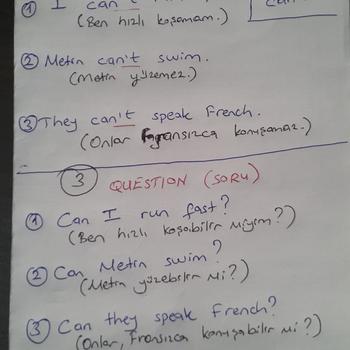 ① I can't
(Ben hızlı koşamam.)
② Metin can't swim.
(Metin yüzemez.)
③ They can't speak French.
(Onlar Fransızca konuşamaz.)
③ QUESTION (SORU)
① Can I run fast?
(Ben hızlı koşabilir miyim?)
② Can Metin swim?
(Metin yüzebilir mi?)
③ Can they speak French?
(Onlar, Fransızca konuşabilir mi?)